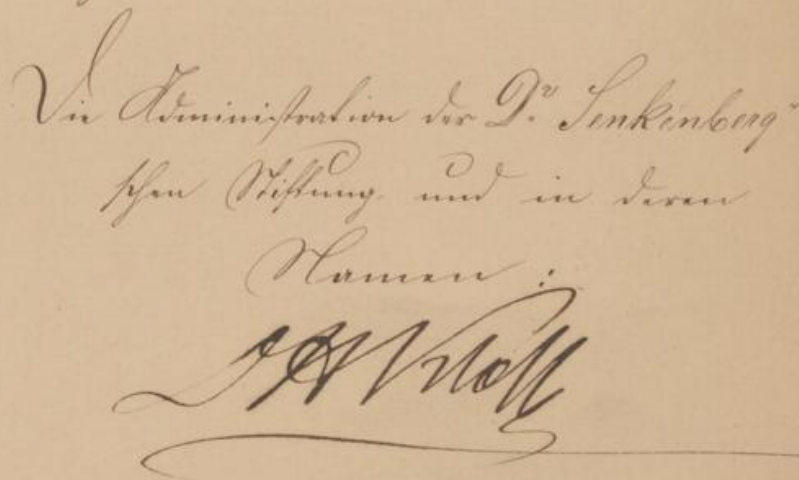 Die Administration der Dr. Senkenberg'
schen Stiftung und in deren
Namen: